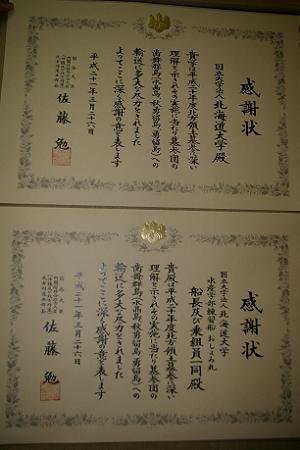 感謝状
国立大学法人 北海道大学殿
貴学は平成二十年度北方領土墓参に深い
理解を示されその実施に当たり墓参団の
歯舞群島(水晶島・秋勇留島・勇留島)への
輸送に多大な尽力をされました
よってここに深く感謝の意を表します
平成二十一年三月二十六日
佐藤 勉
感謝状
国立大学法人 北海道大学
水産学部練習船 おしょろ丸
船長及び乗組員一同殿
貴殿は平成二十年度北方領土墓参に深い
理解を示されその実施に当たり墓参団の
歯舞群島(水晶島・秋勇留島・勇留島)への
輸送に多大な尽力をされました
よってここに深く感謝の意を表します
平成二十一年三月二十六日
佐藤 勉